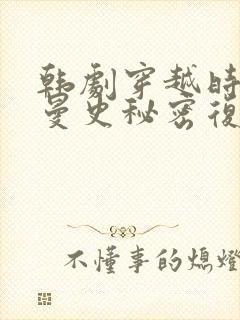 韩劇穿越時
曼史秘密復
不懂事的熄燈